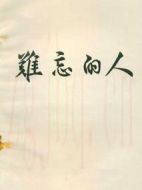 難忘的人